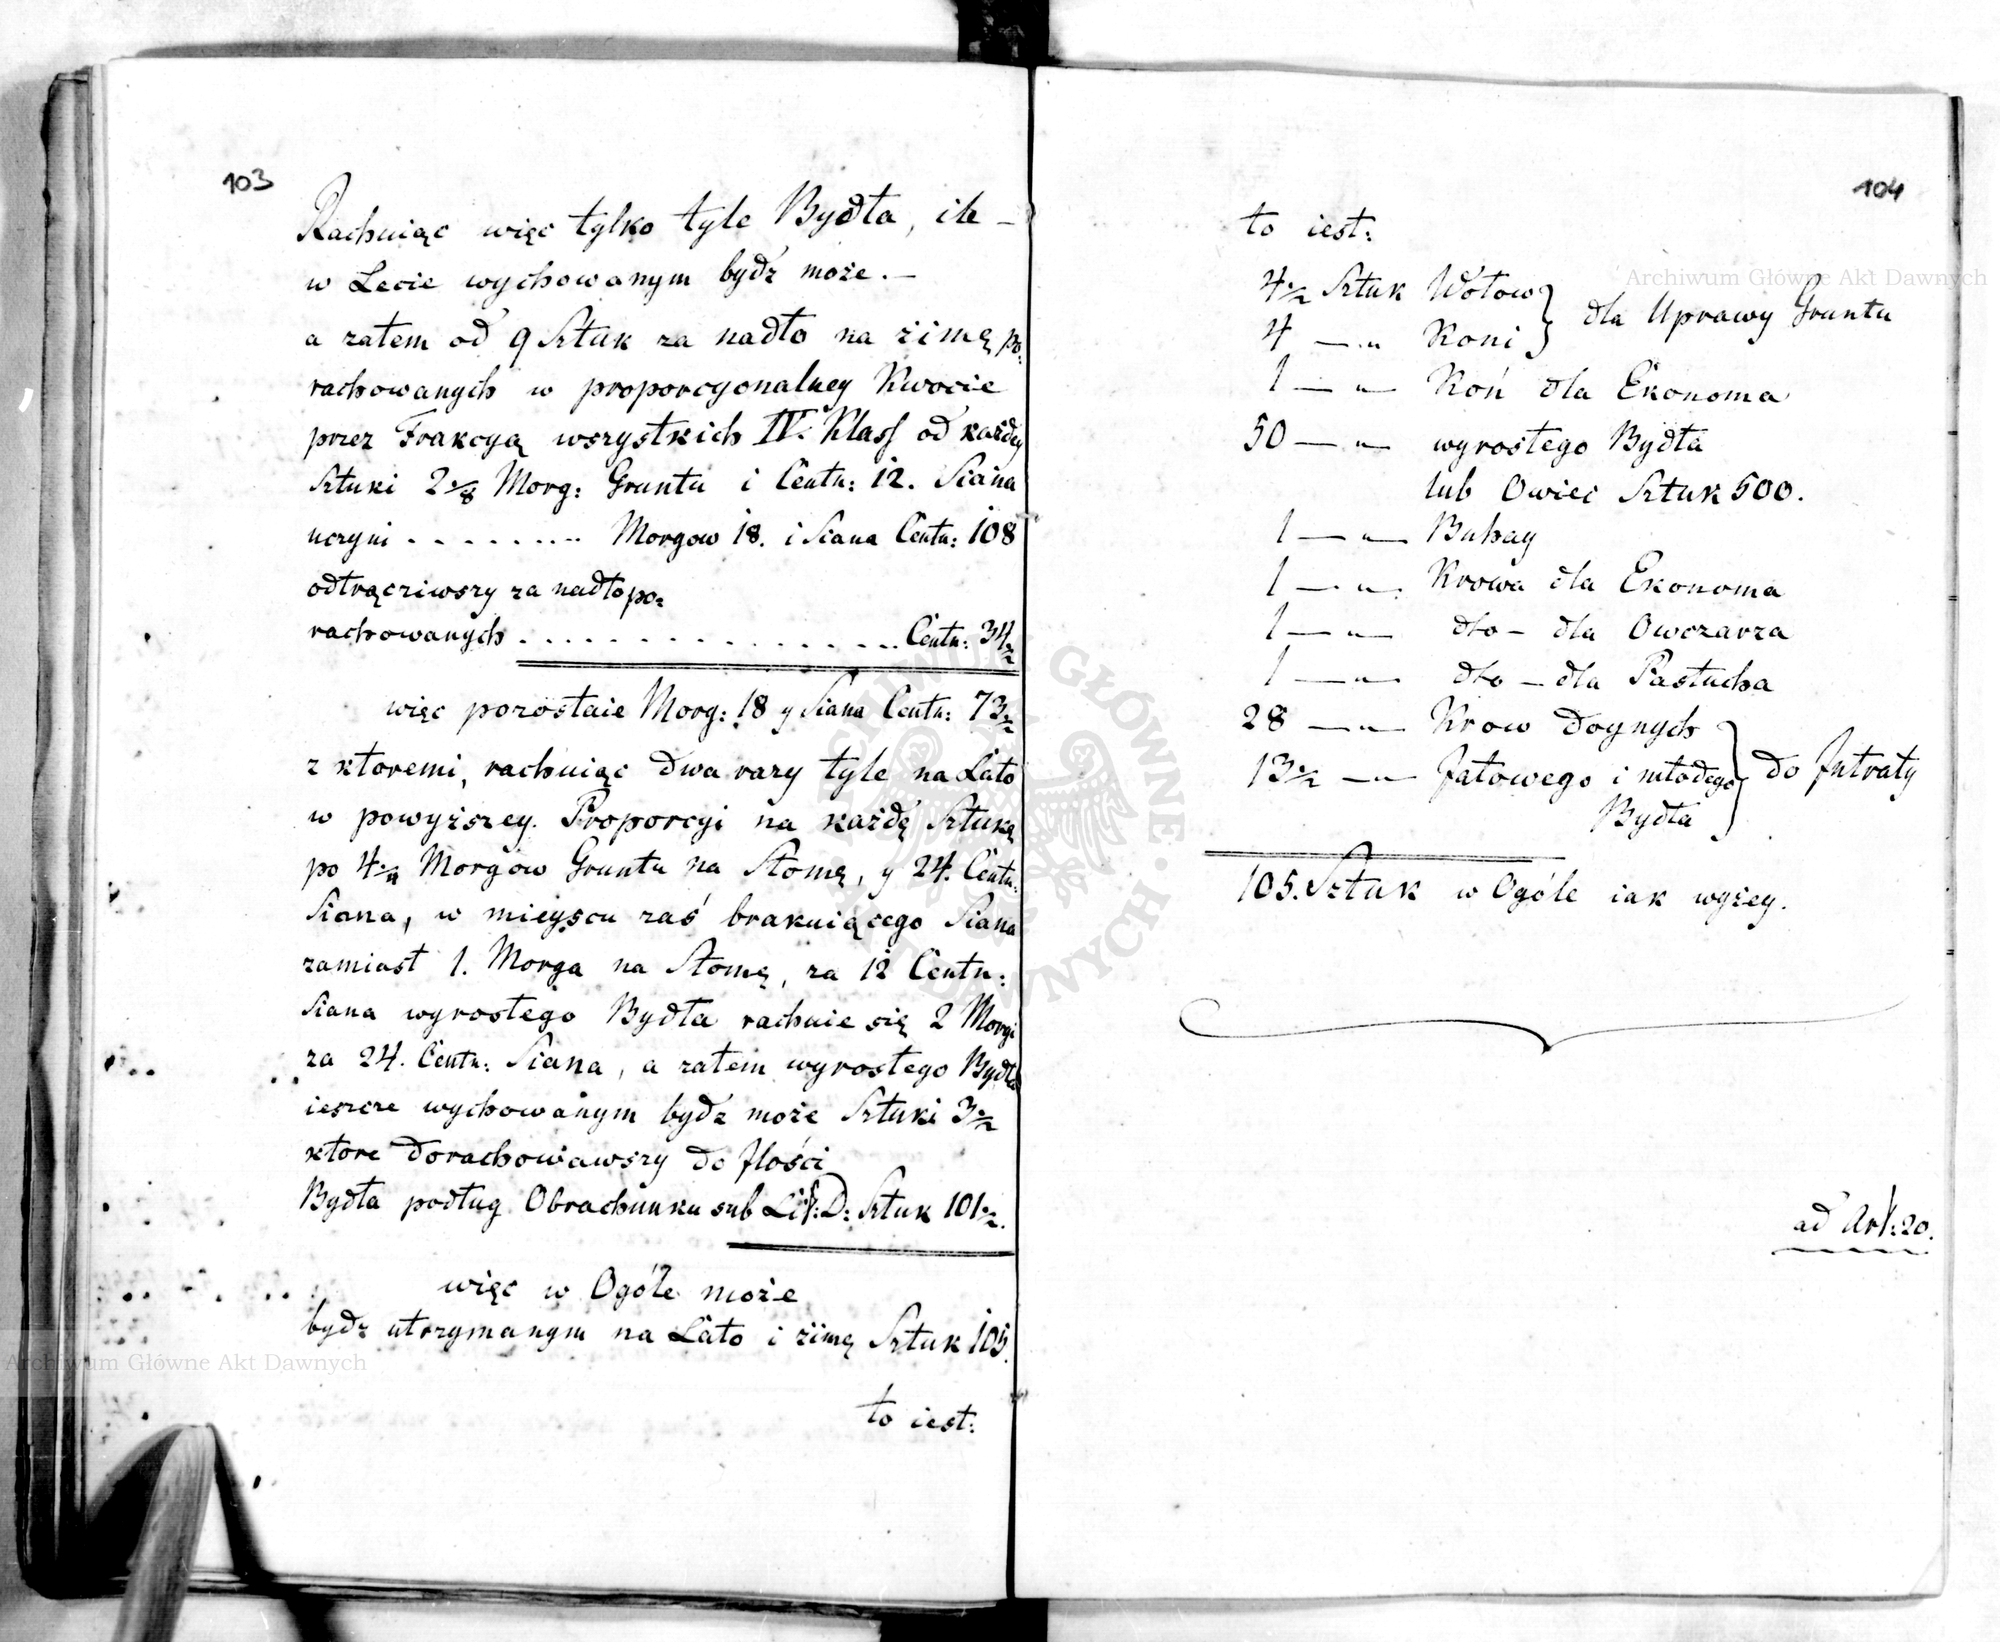 103
Rachuiąc więc tylko tyle Bydła, ile –
w Lecie wychowanym bydź może. –
a zatem od 9 Sztuk za nadto na zimę po:
rachowanych w proporcyonalney Kwocie
przez Frakcyą wszystkich IV. Klass od każdey
Sztuki 2 Morg: Gruntu i Centn: 12. Siana
uczyni . . . . . . . . Morgow 18. i Siana Centn: 108
odtrąciwszy za nadto po:
rachowanych . . . . . . . . . . . . . . . . Centn: 34½
więc pozostaie Morg: 18 y Siana Centn: 73½
z ktoremi, rachuiąc dwa razy tyle na Lato
w powyższey Proporcyi na każdę Sztukę
po 4 Morgow Gruntu na Słomę, y 24. Centn:
Siana, w mieyscu zaś brakuiącego Siana
zamiast 1. Morga na Słomę, za 12 Centn:
Siana wyrosłego Bydła rachuie się 2 Morgi
za 24. Centn: Siana, a zatem wyrosłego Bydła
ieszcze wychowanym bydź może Sztuki 3½
ktore dorachowawszy do Ilości
Bydła podług Obrachunku sub Lit: D: Sztuk 101½.
więc w Ogóle może
bydź utrzymanym na Lato i zimę Sztuk 105.
to iest:
104
to iest:
4½ Sztuk Wołow } dla Uprawy Gruntu
4 — „ Koni }
1 — „ — Koń dla Ekonoma
50 — „ — wyrosłego Bydła
lub Owiec Sztuk 500.
1 — „ — Buhay
1 — „ . Krowa dla Ekonoma
1 — „ — dło – dla Owczarza
1 — „ — dło – dla Pastucha
28 — „ — Krow doynych } do Intraty
13½ — „ — Jałowego i młodego
Bydła }
105. Sztuk w Ogóle iak wyżey.
ad Ark: 20.
Archiwum Główne Akt Dawnych
Archiwum Główne Akt Dawnych
ARCHIWUM GŁÓWNE AKT DAWNYCH